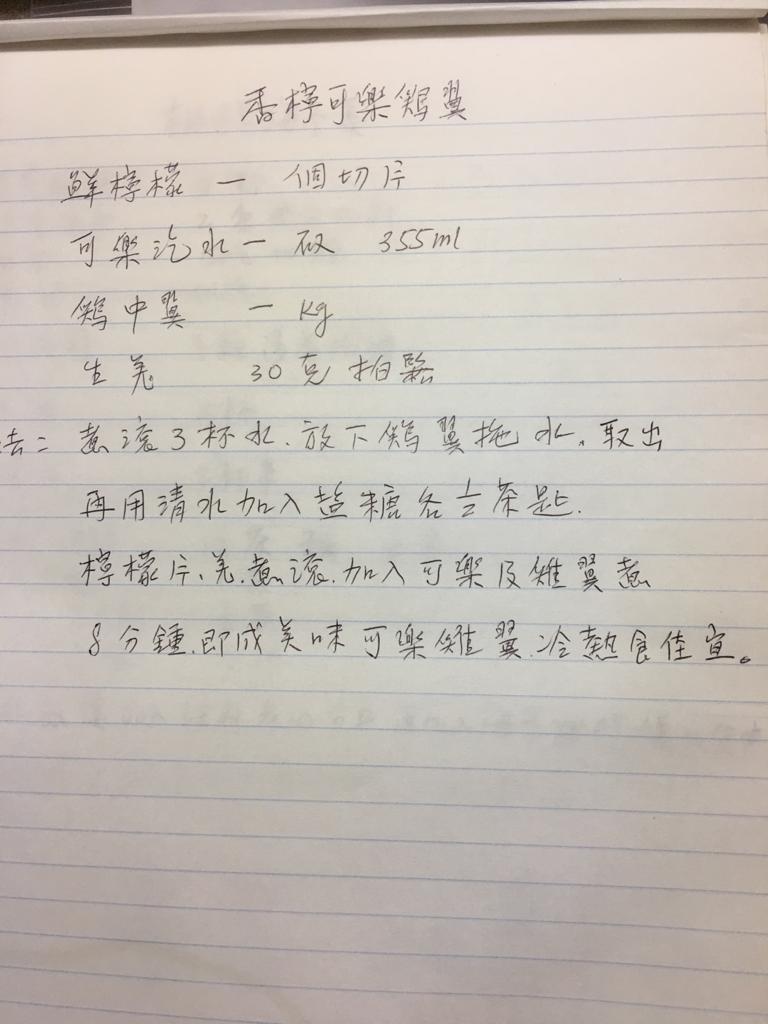 香檸可樂鷄翼
鮮檸檬 一 個切片
可樂汽水一 砍 355ml
鷄中翼 一 kg
生羌 30克 拍鬆
法: 煮滾3杯水.放下鷄翼拖水.取出
再用清水加入盐糖各½茶匙.
檸檬片、羌.煮滾.加入可樂及雞翼煮
8分鍾.即成美味可樂雞翼.冷熱食佳宜。